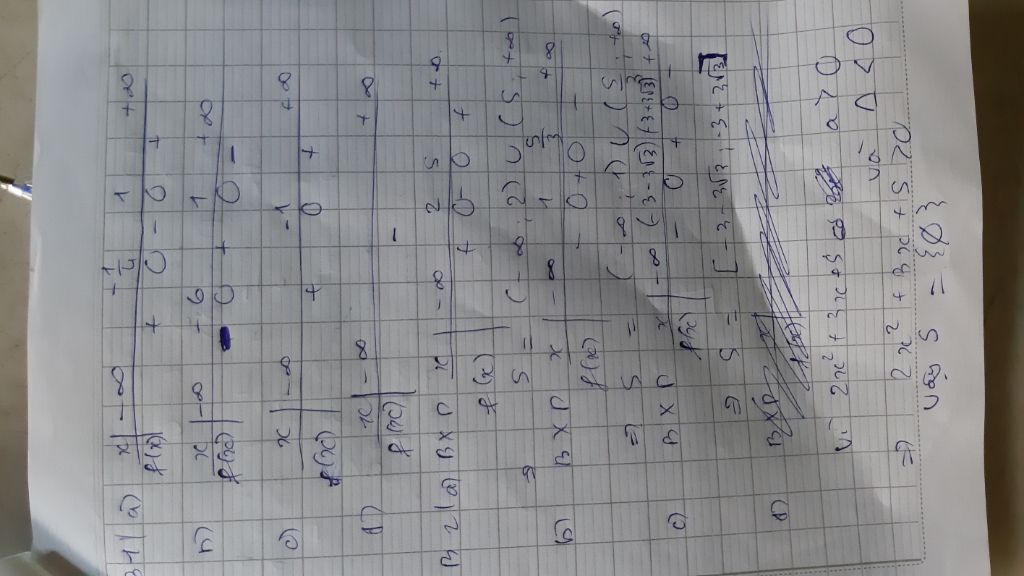 B1 | a) x | -∞ -1/4 1 +∞
f(x) + 0 - 0 +
b) x | -∞ -6 1 +∞
f(x) - 0 + 0 -
c) x | -∞ -1 +∞
f(x) + 0 +
d) x | -∞ +∞
f(x) -
B2 | a) BXD x | -∞ 2 5 +∞
f(x) + 0 - 0 +
⇒ S = (-∞; 2) ∪ (5; +∞)
b) BXD x | -∞ 1 5/3 +∞
f(x) - 0 + 0 -
⇒ S = (-∞; 1) ∪ (5/3; +∞)
c) BXD x | -∞ (-3-3√3) (-3+3√3) +∞
f(x) - 0 + 0 -
⇒ S = [-3-3√3; -3+3√3]
d)
Vì 2x² + 3x + 5 có a > 0
và Δ < 0
⇒ 2x² + 3x + 5 > 0
Vậy S = {∅}